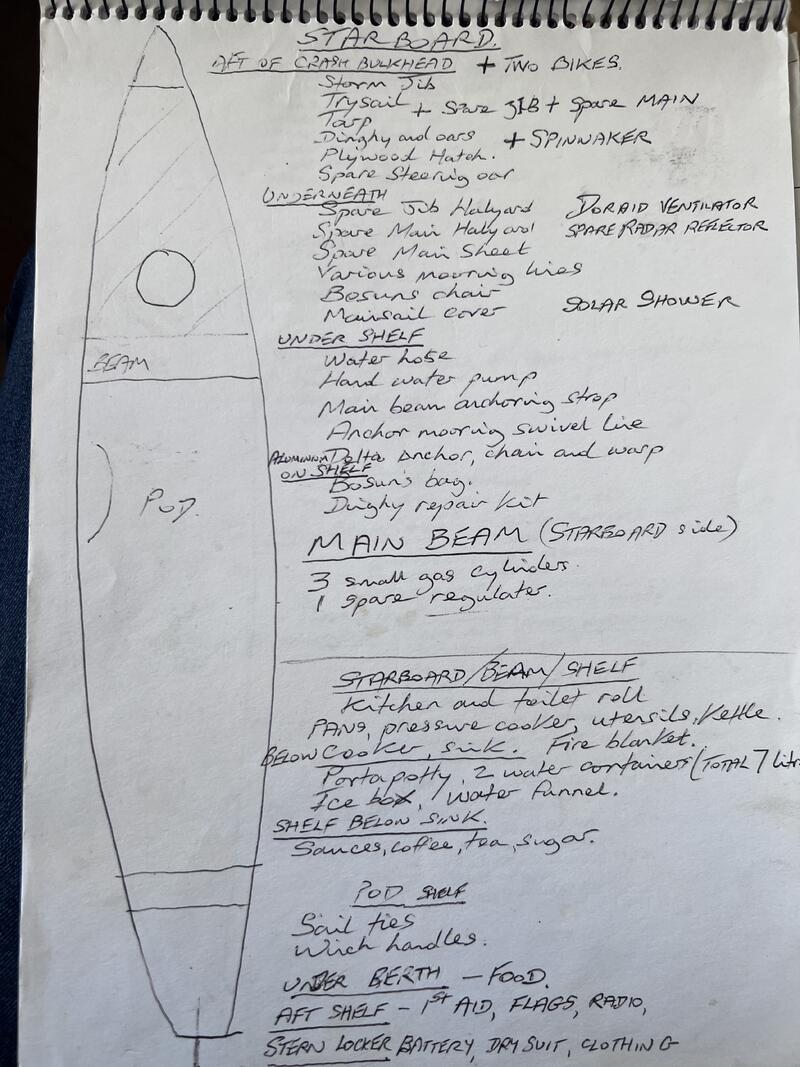 STARBOARD.
AFT OF CRASH BULKHEAD + TWO BIKES.
Storm Jib
Trysail + Spare JIB + Spare MAIN
Tarp
Dinghy and oars + SPINNAKER
Plywood Hatch.
Spare Steering oar
UNDERNEATH
Spare Jib Halyard DORAID VENTILATOR
Spare Main Halyard SPARE RADAR REFLECTOR
Spare Main Sheet
Various mooring lines
Bosuns chair
Mainsail cover SOLAR SHOWER
UNDER SHELF
Water hose
BEAM
Hand water pump
Main beam anchoring strop
Anchor mooring swivel line
ALUMINIUM Delta Anchor, chain and warp
ON SHELF
Bosun's bag.
POD.
Dinghy repair kit
MAIN BEAM (STARBOARD side)
3 small gas cylinders.
1 spare regulater.
STARBOARD/BEAM/SHELF
Kitchen and toilet roll
PANS, pressure cooker, utensils, Kettle.
BELOW Cooker, sink. Fire blanket.
Portapotty, 2 water containers (TOTAL 7 litr
Ice box, Water funnel.
SHELF BELOW SINK.
Sauces, coffee, tea, sugar.
POD SHELF
Sail ties
Winch handles.
UNDER BERTH - FOOD.
AFT SHELF - 1ST AID, FLAGS, RADIO,
STERN LOCKER BATTERY, DRY SUIT, CLOTHING